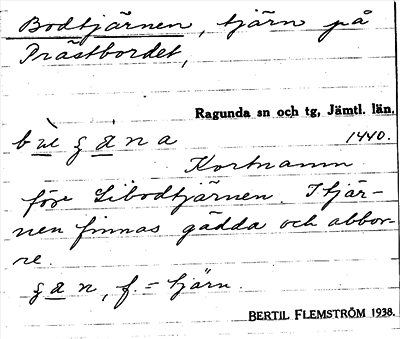 Bodtjärnen, tjärn på
Prästbordet,
Ragunda sn och tg, Jämtl. län.
1440.
Kortnamn
före Libodtjärnen. I tjär-
nen finnas gädda och abbor-
re.
f. = tjärn.
BERTIL FLEMSTRÖM 1938.